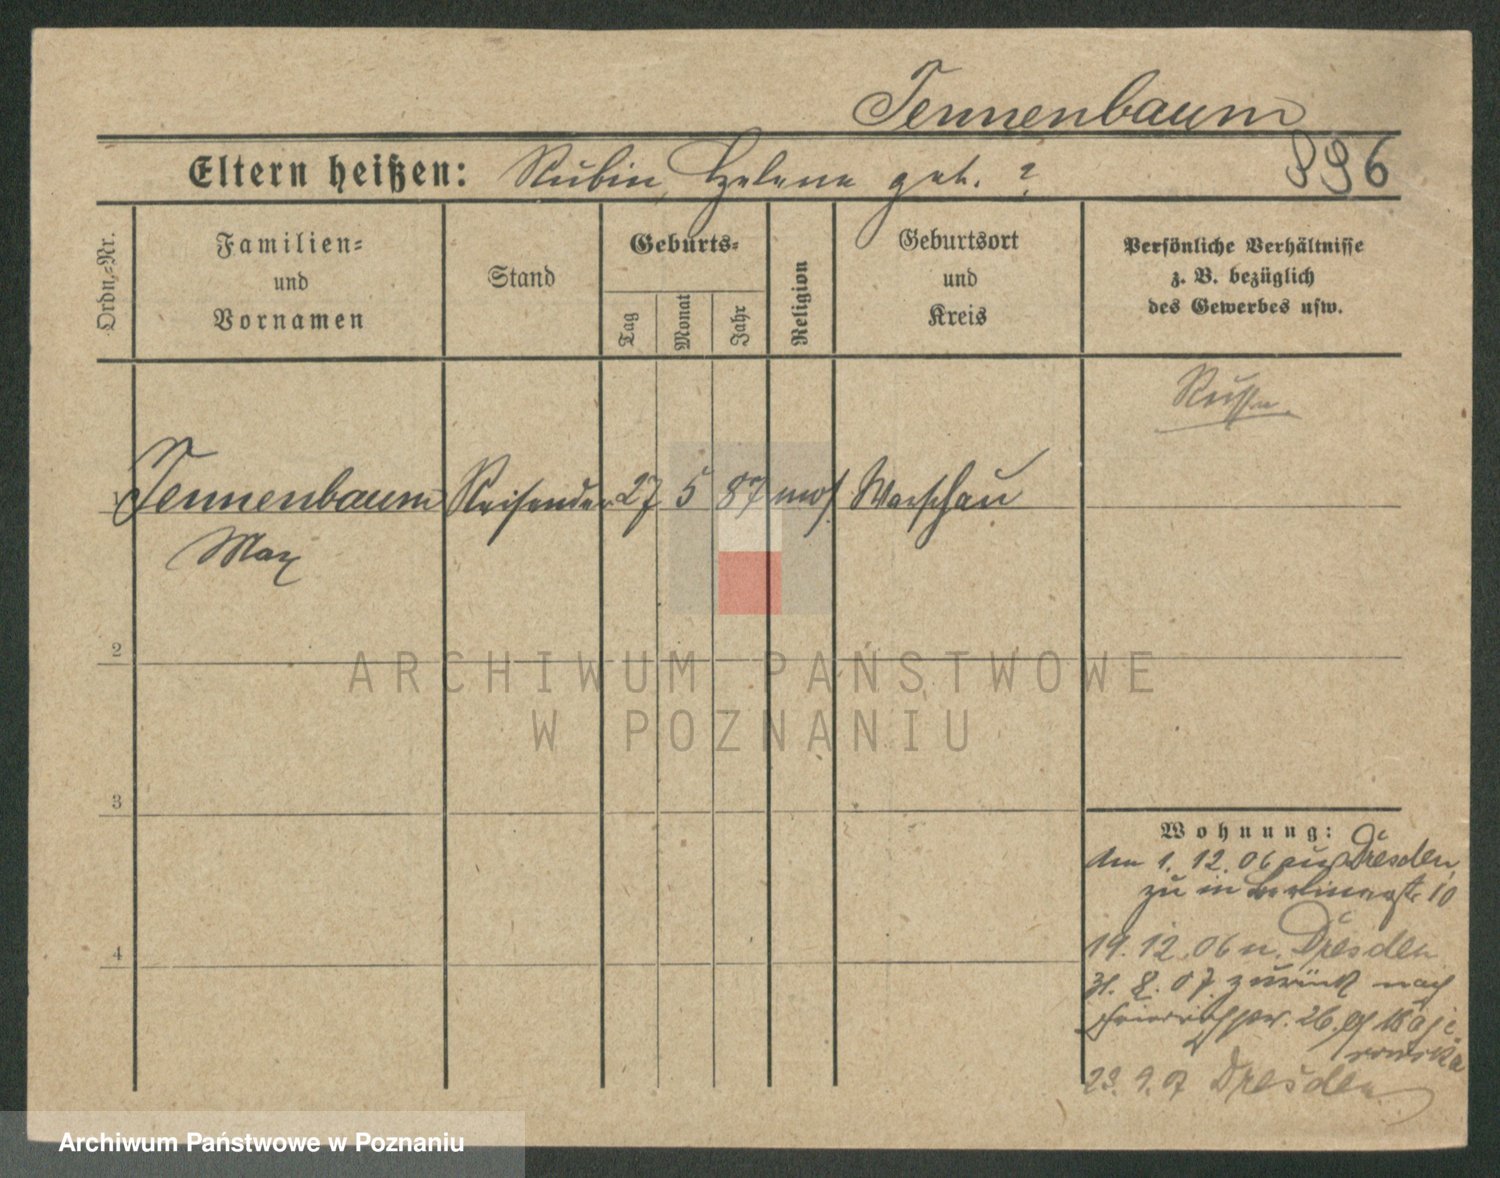 Tennenbaum
Eltern heißen: Rubin, Helene geb. ?
996
Ordn.-Nr.
Familien-
und
Vornamen
Stand
Geburts-
Tag
Monat
Jahr
Religion
Geburtsort
und
Kreis
Persönliche Verhältnisse
z. B. bezüglich
des Gewerbes usw.
Russe
1 Tennenbaum Reisender 27 5 87 mos. Warschau
Max
2
ARCHIWUM PAŃSTWOWE
W POZNANIU
3
Wohnung:
Am 1. 12. 06 aus Dresden
zu in Berlinerstr 10
19. 12. 06 n. Dresden
31. 8. 07 zurück nach
26.
4
23. 9. 07 Dresden
Archiwum Państwowe w Poznaniu